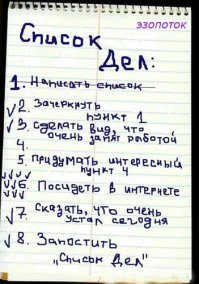 эзопоток
Список
Дел:
1. Написать список
✓2. Зачеркнуть
пункт 1
✓3. Сделать вид, что
очень занят работой
4.
5. Придумать интересный
пункт 4
✓✓✓6. Посидеть в интернете
✓7. Сказать, что очень
устал сегодня
✓8. Запостить
"Список Дел"